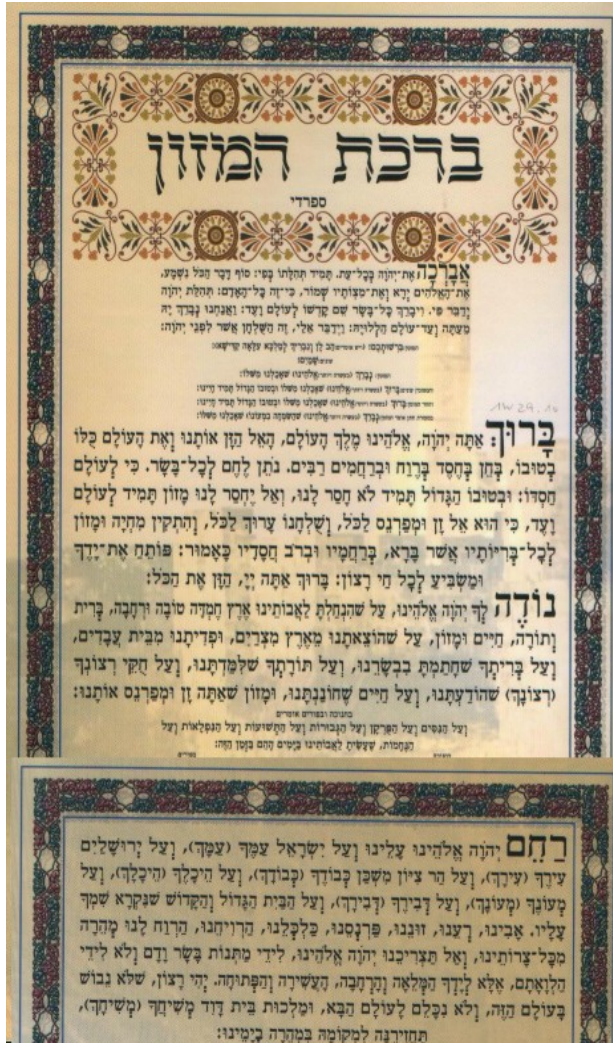 ברכת המזון
ספרדי
אֲבָרְכָה אֶת־יְהוָֹה בְּכָל־עֵת. תָּמִיד תְּהִלָּתוֹ בְּפִי: סוֹף דָּבָר הַכֹּל נִשְׁמָע,
אֶת־הָאֱלֹהִים יְרָא וְאֶת־מִצְוֹתָיו שְׁמוֹר, כִּי־זֶה כָּל־הָאָדָם: תְּהִלַּת יְהוָֹה
יְדַבֶּר פִּי. וִיבָרֵךְ כָּל־בָּשָׂר שֵׁם קָדְשׁוֹ לְעוֹלָם וָעֶד: וַאֲנַחְנוּ נְבָרֵךְ יָהּ
מֵעַתָּה וְעַד־עוֹלָם הַלְלוּיָהּ: וַיְדַבֵּר אֵלַי, זֶה הַשֻּׁלְחָן אֲשֶׁר לִפְנֵי יְהוָֹה:
שָׁמַיִם:
בָּרוּךְ: אַתָּה יְהוָֹה, אֱלֹהֵינוּ מֶלֶךְ הָעוֹלָם, הָאֵל הַזָּן אוֹתָנוּ וְאֶת הָעוֹלָם כֻּלּוֹ
בְּטוּבוֹ, בְּחֵן בְּחֶסֶד בְּרֶוַח וּבְרַחֲמִים רַבִּים. נֹתֵן לֶחֶם לְכָל־בָּשָׂר. כִּי לְעוֹלָם
חַסְדּוֹ: וּבְטוּבוֹ הַגָּדוֹל תָּמִיד לֹא חָסַר לָנוּ, וְאַל יֶחְסַר לָנוּ מָזוֹן תָּמִיד לְעוֹלָם
וָעֶד, כִּי הוּא אֵל זָן וּמְפַרְנֵס לַכֹּל, וְשֻׁלְחָנוֹ עָרוּךְ לַכֹּל, וְהִתְקִין מִחְיָה וּמָזוֹן
לְכָל־בְּרִיּוֹתָיו אֲשֶׁר בָּרָא, בְּרַחֲמָיו וּבְרֹב חֲסָדָיו כָּאָמוּר: פּוֹתֵחַ אֶת־יָדֶךָ
וּמַשְׂבִּיעַ לְכָל חַי רָצוֹן: בָּרוּךְ אַתָּה יְיָ, הַזָּן אֶת הַכֹּל:
נוֹדֶה לְּךָ יְהוָֹה אֱלֹהֵינוּ, עַל שֶׁהִנְחַלְתָּ לַאֲבוֹתֵינוּ אֶרֶץ חֶמְדָּה טוֹבָה וּרְחָבָה, בְּרִית
וְתוֹרָה, חַיִּים וּמָזוֹן, עַל שֶׁהוֹצֵאתָנוּ מֵאֶרֶץ מִצְרַיִם, וּפְדִיתָנוּ מִבֵּית עֲבָדִים,
וְעַל בְּרִיתְךָ שֶׁחָתַמְתָּ בִּבְשָׂרֵנוּ, וְעַל תּוֹרָתְךָ שֶׁלִּמַּדְתָּנוּ, וְעַל חֻקֵּי רְצוֹנָךְ
(רְצוֹנֶךָ) שֶׁהוֹדַעְתָּנוּ, וְעַל חַיִּים שֶׁחוֹנַנְתָּנוּ, וּמָזוֹן שֶׁאַתָּה זָן וּמְפַרְנֵס אוֹתָנוּ:
בחנוכה ובפורים אומרים
וְעַל הַנִּסִּים וְעַל הַפֻּרְקָן וְעַל הַגְּבוּרוֹת וְעַל הַתְּשׁוּעוֹת וְעַל הַנִּפְלָאוֹת וְעַל
הַנֶּחָמוֹת, שֶׁעָשִׂיתָ לַאֲבוֹתֵינוּ בַּיָּמִים הָהֵם בַּזְּמַן הַזֶּה:
רַחֵם יְהוָֹה אֱלֹהֵינוּ עָלֵינוּ וְעַל יִשְׂרָאֵל עַמָּךְ (עַמֶּךָ), וְעַל יְרוּשָׁלַיִם
עִירָךְ (עִירֶךָ), וְעַל הַר צִיּוֹן מִשְׁכַּן כְּבוֹדָךְ (כְּבוֹדֶךָ), וְעַל הֵיכָלָךְ (הֵיכָלֶךָ), וְעַל
מְעוֹנָךְ (מְעוֹנֶךָ), וְעַל דְּבִירָךְ (דְּבִירֶךָ), וְעַל הַבַּיִת הַגָּדוֹל וְהַקָּדוֹשׁ שֶׁנִּקְרָא שִׁמְךָ
עָלָיו. אָבִינוּ, רְעֵנוּ, זוּנֵנוּ, פַּרְנְסֵנוּ, כַּלְכְּלֵנוּ, הַרְוִיחֵנוּ, הַרְוַח לָנוּ מְהֵרָה
מִכָּל־צָרוֹתֵינוּ, וְאַל תַּצְרִיכֵנוּ יְהוָֹה אֱלֹהֵינוּ, לִידֵי מַתְּנוֹת בָּשָׂר וָדָם וְלֹא לִידֵי
הַלְוָאָתָם, אֶלָּא לְיָדְךָ הַמְּלֵאָה וְהָרְחָבָה, הָעֲשִׁירָה וְהַפְּתוּחָה. יְהִי רָצוֹן, שֶׁלֹּא נֵבוֹשׁ
בָּעוֹלָם הַזֶּה, וְלֹא נִכָּלֵם לָעוֹלָם הַבָּא, וּמַלְכוּת בֵּית דָּוִד מְשִׁיחָךְ (מְשִׁיחֶךָ),
תַּחֲזִירֶנָּה לִמְקוֹמָהּ בִּמְהֵרָה בְיָמֵינוּ: